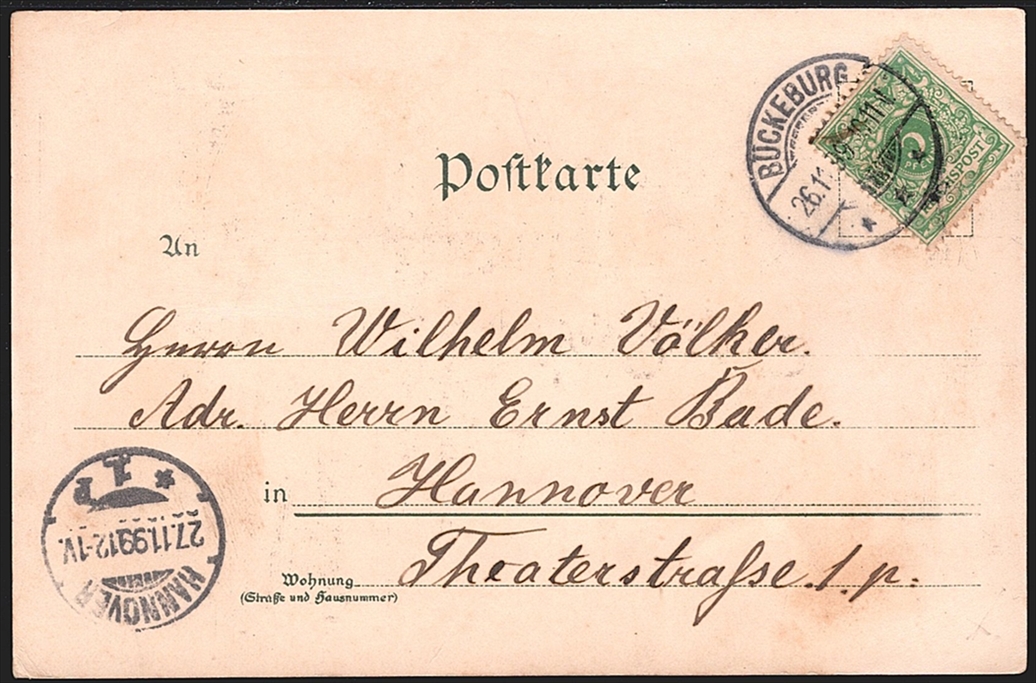 BÜCKEBURG
26.11.99. 10-11N.
Postkarte
An
Herrn Wilhelm Völker.
Adr. Herrn Ernst Bade.
in Hannover
Wohnung Theaterstraße. 1. p.
(Straße und Hausnummer)
HANNOVER
27.11.99.12-1V.
1